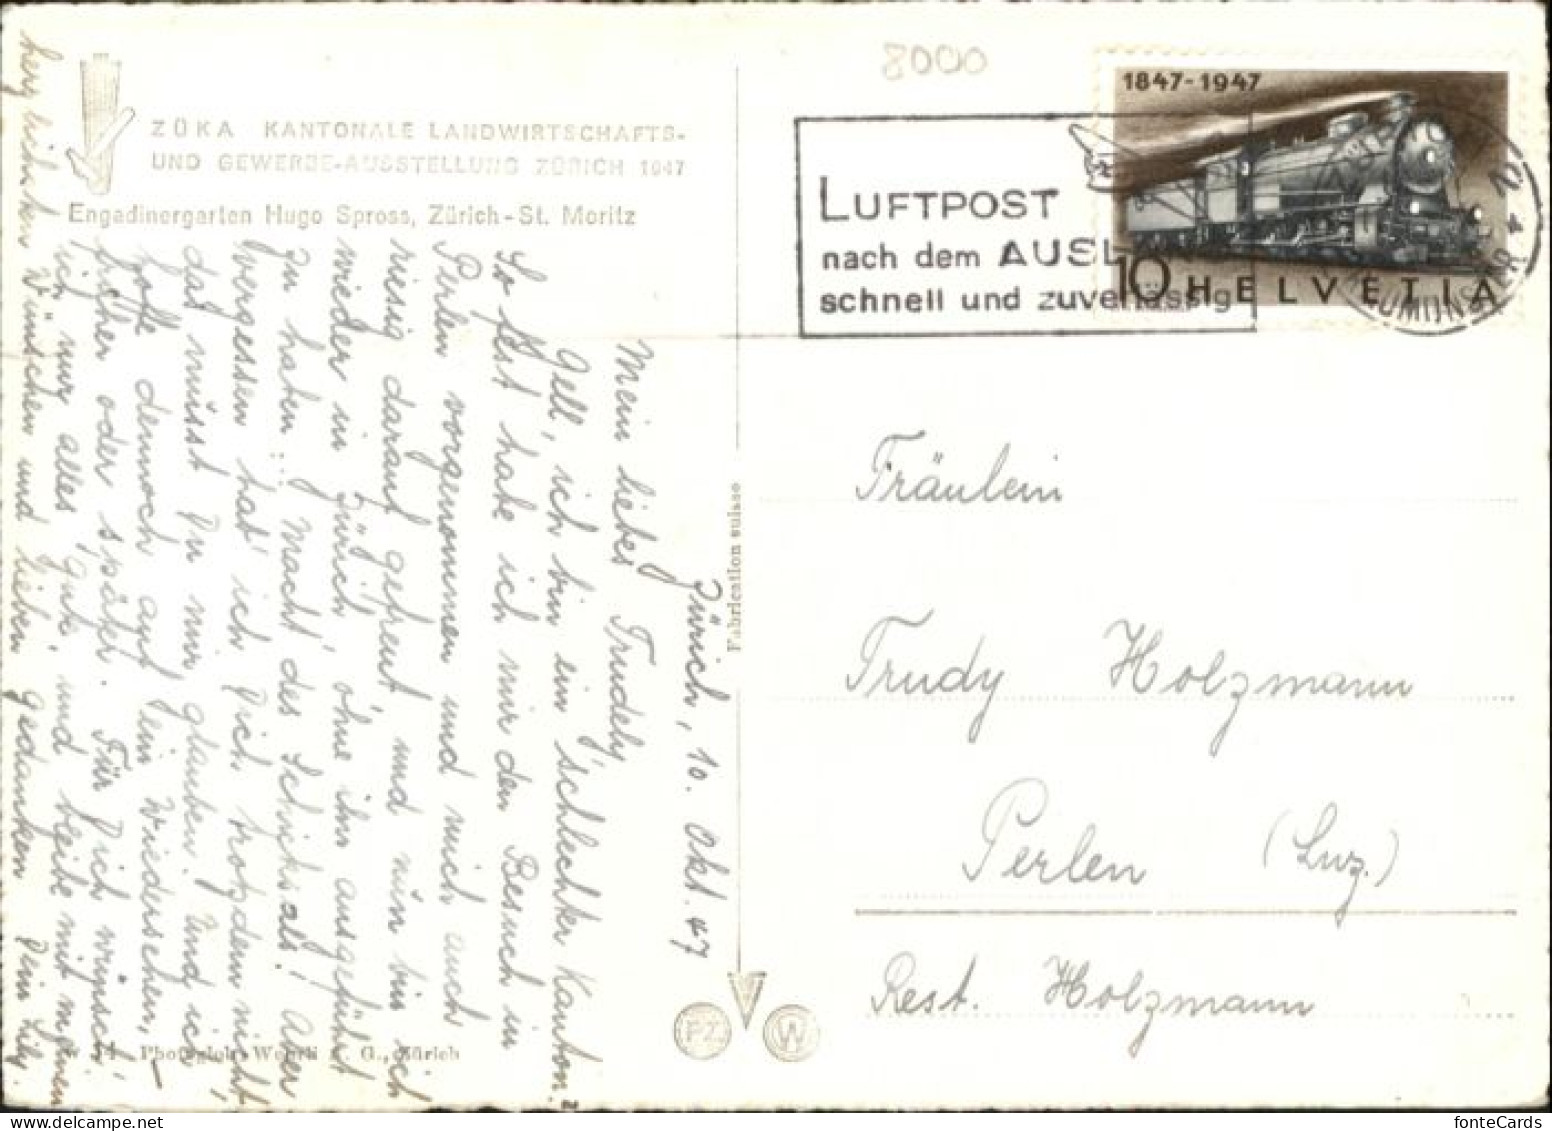 8000
ZÜKA KANTONALE LANDWIRTSCHAFTS-
UND GEWERBE-AUSSTELLUNG ZÜRICH 1947
Engadinergarten Hugo Spross, Zürich-St. Moritz
1847-1947
10 HELVETIA
LUFTPOST
nach dem AUSL
schnell und zuverlässig
Zürich, 10. Okt. 47
Mein liebes Trudely
Gell, ich bin ein schlechter Kanton.
So fest habe ich mir den Besuch in
Perlen vorgenommen und mich auch
riesig darauf gefreut, und nun bin ich
wieder in Zürich, ohne ihn ausgeführt
zu haben. Macht des Schicksals! Aber
vergessen hab' ich Dich trotzdem nicht
das musst Du mir glauben. Und ich
hoffe dennoch auf ein Wiedersehen,
früher oder später. Für Dich wünsch'
ich nur alles Gute, und bleibe mit meinen
herzlichsten Wünschen und lieben Gedanken Dein Lily.
Fabrication suisse
PZ
W
W 34 Photoglob-Wehrli A. G., Zürich
Fräulein
Trudy Holzmann
Perlen (Luz.)
Rest. Holzmann
fonteCards